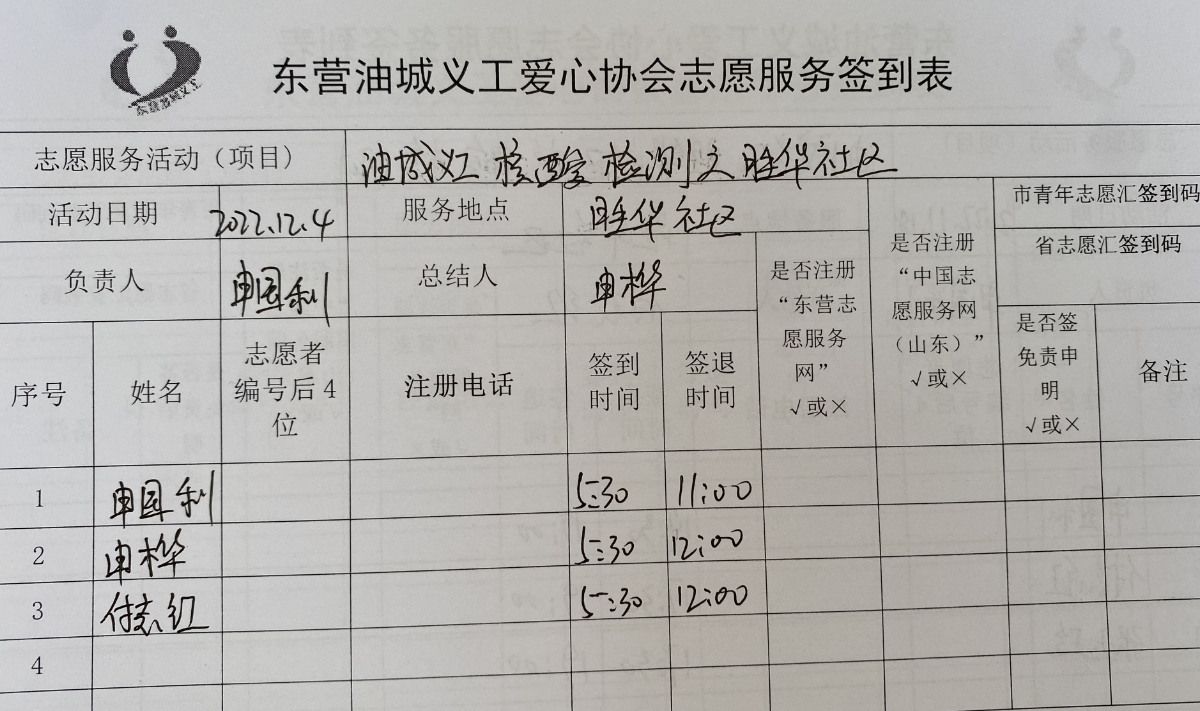 东营油城义工
东营油城义工爱心协会志愿服务签到表
志愿服务活动（项目） 油城义工核酸检测之胜华社区
活动日期 2022.12.4 服务地点 胜华社区
市青年志愿汇签到码
负责人 申国利 总结人 申桦
省志愿汇签到码
是否注册
“东营志
愿服务
网”
√或×
是否注册
“中国志
愿服务网
（山东）”
√或×
序号 姓名
志愿者
编号后4
位
注册电话
签到
时间
签退
时间
是否签
免责申
明
√或×
备注
1 申国利 5:30 11:00
2 申桦 5:30 12:00
3 付志红 5:30 12:00
4